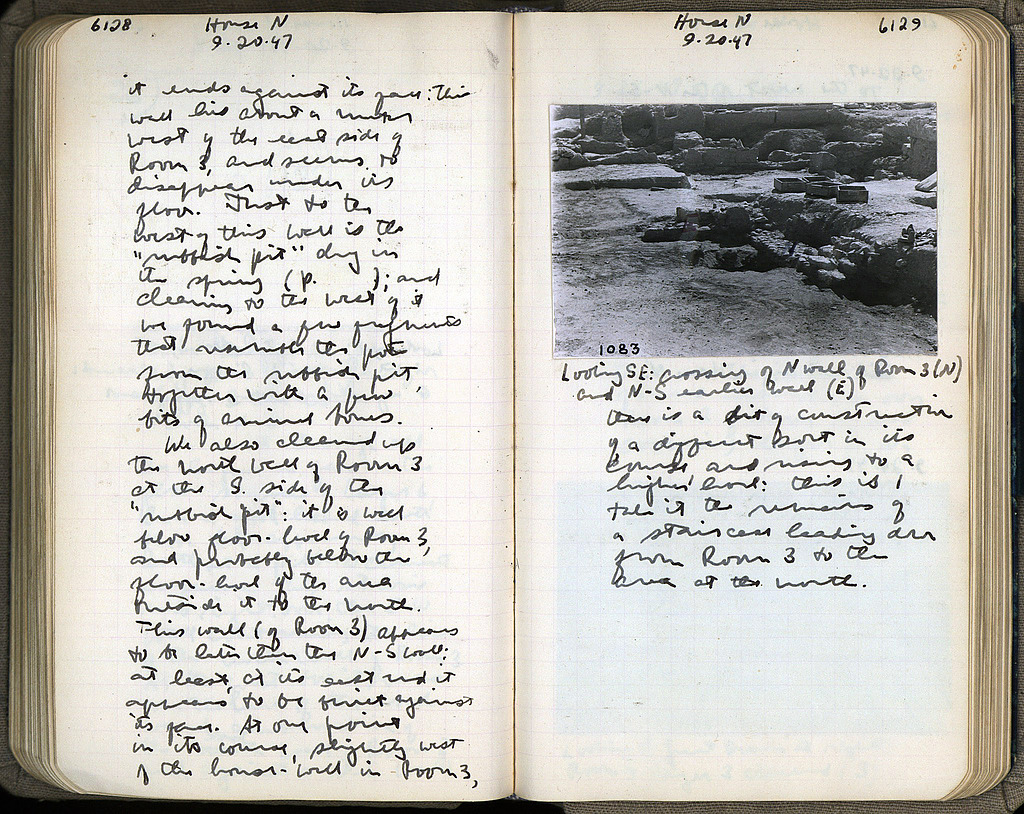 6128
House N
9.20.47
it ends against its face. This
wall lies about a meter
west of the east side of
Room 3, and seems to
disappear under its
floor. Just to the
west of this wall is the
"rubbish pit" dug in
the spring (p.      ); and
cleaning to the west of it
we found a few fragments
that resemble the pots
from the rubbish pit,
together with a few
bits of animal bones.
We also cleaned up
the north wall of Room 3
at the S. side of the
"rubbish pit": it is well
below floor-level of Room 3,
and probably below the
floor-level of the area
outside it to the north.
This wall (of Room 3) appears
to be later than the N-S wall:
at least, at its east end it
appears to be built against
its face. At one point
in its course, slightly west
of the house-wall in Room 3,
House N
9.20.47
6129
1083
Looking SE: crossing of N wall of Room 3 (N)
and N-S earlier wall (E)
there is a bit of construction
of a different sort in its
course and rising to a
higher level: this is I
take it the remains of
a staircase leading down
from Room 3 to the
area at the north.